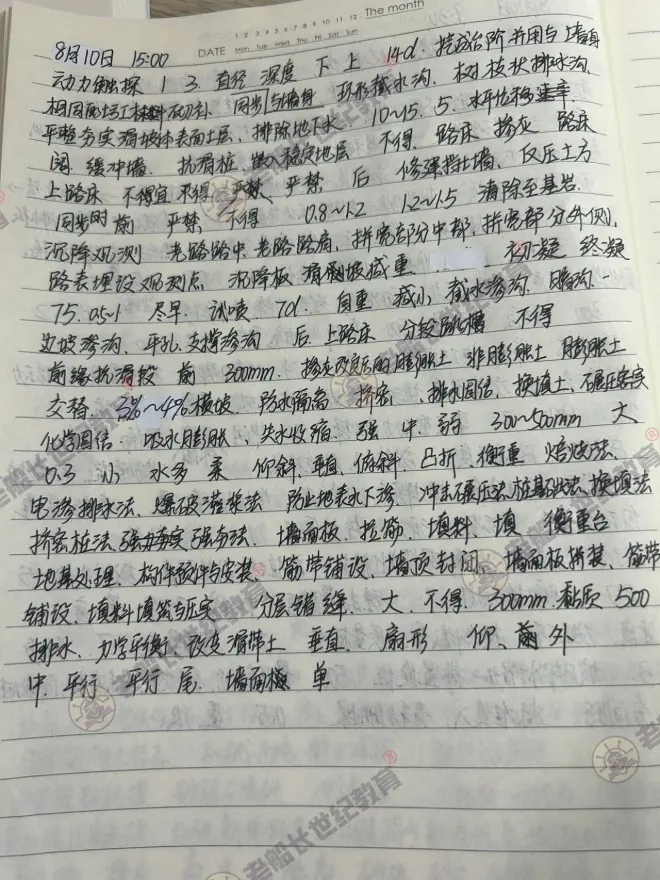 1 2 3 4 5 6 7 8 9 10 11 12 The month
8月10日 15:00 DATE Mon Tue Wed Thu Fri Sat Sun
14d. 挖成台阶并用与墙身
动力触探 1 3. 直径 深度 下 上
相同圬工材料砌补 同步 与墙身 环形截水沟. 树枝状排水沟.
平整夯实滑坡体表面土层, 排除地下水. 10~15. 5. 水平位移速率
缓冲墙. 抗滑桩. 嵌入稳定地层 不得. 路床 掺灰 路床
上路床 不得宜 不得 严禁 严禁 后 修筑挡土墙、反压土方
同步时 前 严禁 不得 0.8~1.2 1.2~1.5 清除至基岩.
沉降观测 老路路中. 老路路肩, 拼宽部分中部, 拼宽部分外侧.
路表埋设观测点 沉降板 滑坡减重 初凝 终凝
75. 0.5~1 尽早. 试喷. 7d. 自重 减小 截水渗沟. 暗沟.
边坡渗沟. 平孔. 支撑渗沟 后. 上路床 分段跳槽 不得
前缘抗滑段 前 300mm. 掺灰改良后的膨胀土 非膨胀土 膨胀土
交替. 3%~4%横坡 防水隔离 挤密、排水固结, 换填土, 碾压密实
化学固结. 吸水膨胀、失水收缩. 强 中. 弱 300~500mm 大
0.3 小 水多 柔 仰斜、垂直、俯斜、凸折、衡重 焙烧法.
电渗排水法、爆破灌浆法 防止地表水下渗 冲击碾压法, 桩基础法, 换填法
挤密桩法, 强力夯实 强夯法. 墙面板、拉筋、填料、填 衡重台
地基处理、构件预件与安装、筋带铺设、墙顶封闭 墙面板拼装、筋带
铺设、填料填筑与压实 分层错缝. 大. 不得. 300mm. 黏质 500
排水、力学平衡、改变滑带土 垂直. 扇形 仰、前 外
中. 平行 平行 尾. 墙面 单
老船长世纪教育